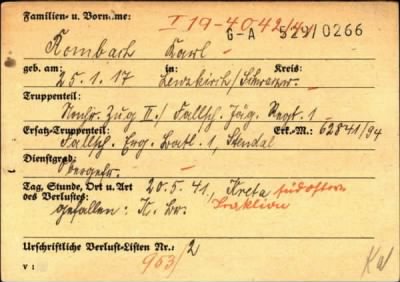 Familien- u. Vorname: I 19-4042/41
Rombach Karl G-A 529/0266
geb. am: in: Kreis:
25.1.17 Lenzkirch/Schwarzw.
Truppenteil:
Nachr. Zug II./Fallsch. Jäg. Regt. 1
Ersatz-Truppenteil: Erk.-M.: 62841/94
Fallsch. Erg. Batl. 1, Stendal
Dienstgrad:
Obergefr.
Tag, Stunde, Ort u. Art 20.5.41, Kreta südostw.
des Verlustes: Iraklion
gefallen: K. Br.
Urschriftliche Verlust-Listen Nr.: 2
953/
V 1